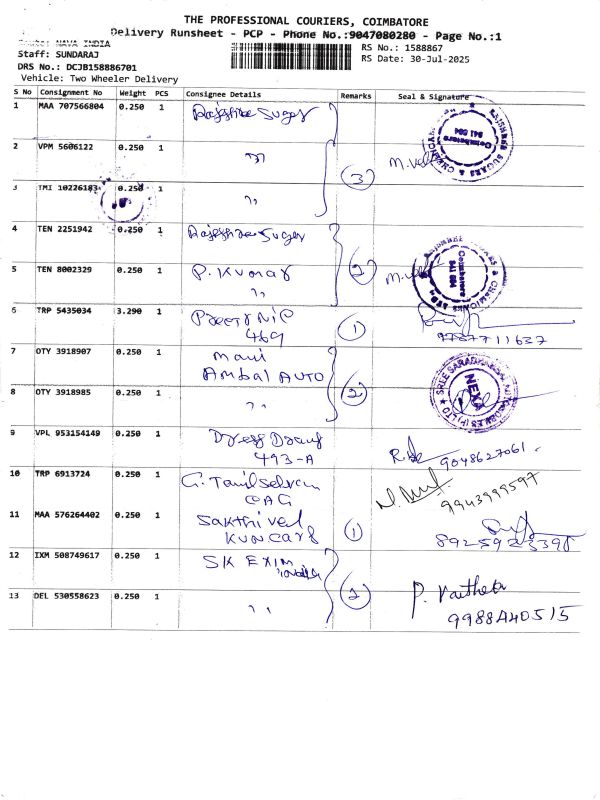 THE PROFESSIONAL COURIERS, COIMBATORE
Delivery Runsheet - PCP - Phone No.:9047080280 - Page No.:1
NAVA INDIA
Staff: SUNDARAJ
RS No.: 1588867
DRS No.: DCJB158886701
RS Date: 30-Jul-2025
Vehicle: Two Wheeler Delivery
S No Consignment No Weight PCS Consignee Details Remarks Seal & Signature
1 MAA 707566804 0.250 1
2 VPM 5606122 0.250 1 " M.vel
3 TMI 10226183 0.250 1 " 3
4 TEN 2251942 0.250 1
5 TEN 8002329 0.250 1 P. Kumar 2 M.vel
"
6 TRP 5435034 3.290 1 1
469 9787711637
7 OTY 3918907 0.250 1
Ambal AUTO 2
8 OTY 3918985 0.250 1 "
9 VPL 953154149 0.250 1
493-A 9048627061
10 TRP 6913724 0.250 1 G. Tamilselvan
9943999597
11 MAA 576264402 0.250 1 Sakthivel 1
12 IXM 508749617 0.250 1 SK EXIM
2 P.
13 DEL 530558623 0.250 1 "
Coimbatore
641 004
Coimbatore
641 004
NEXA